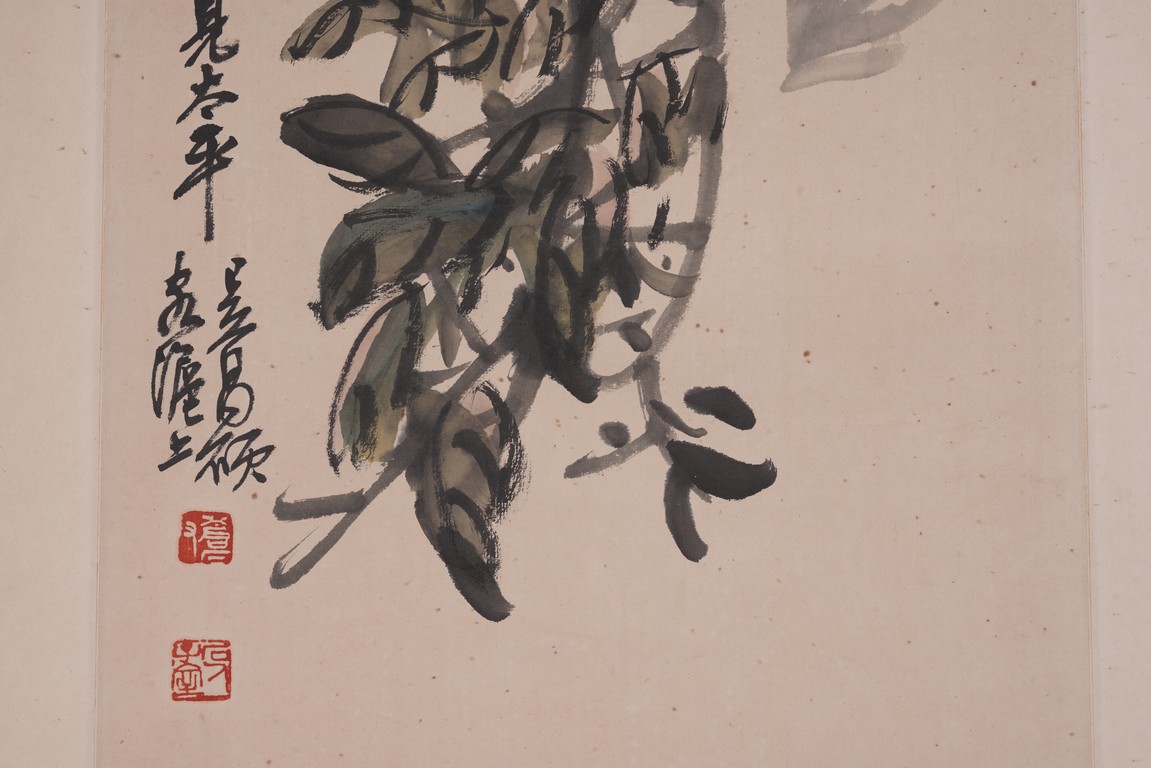 見太平
吳昌碩
客滬上